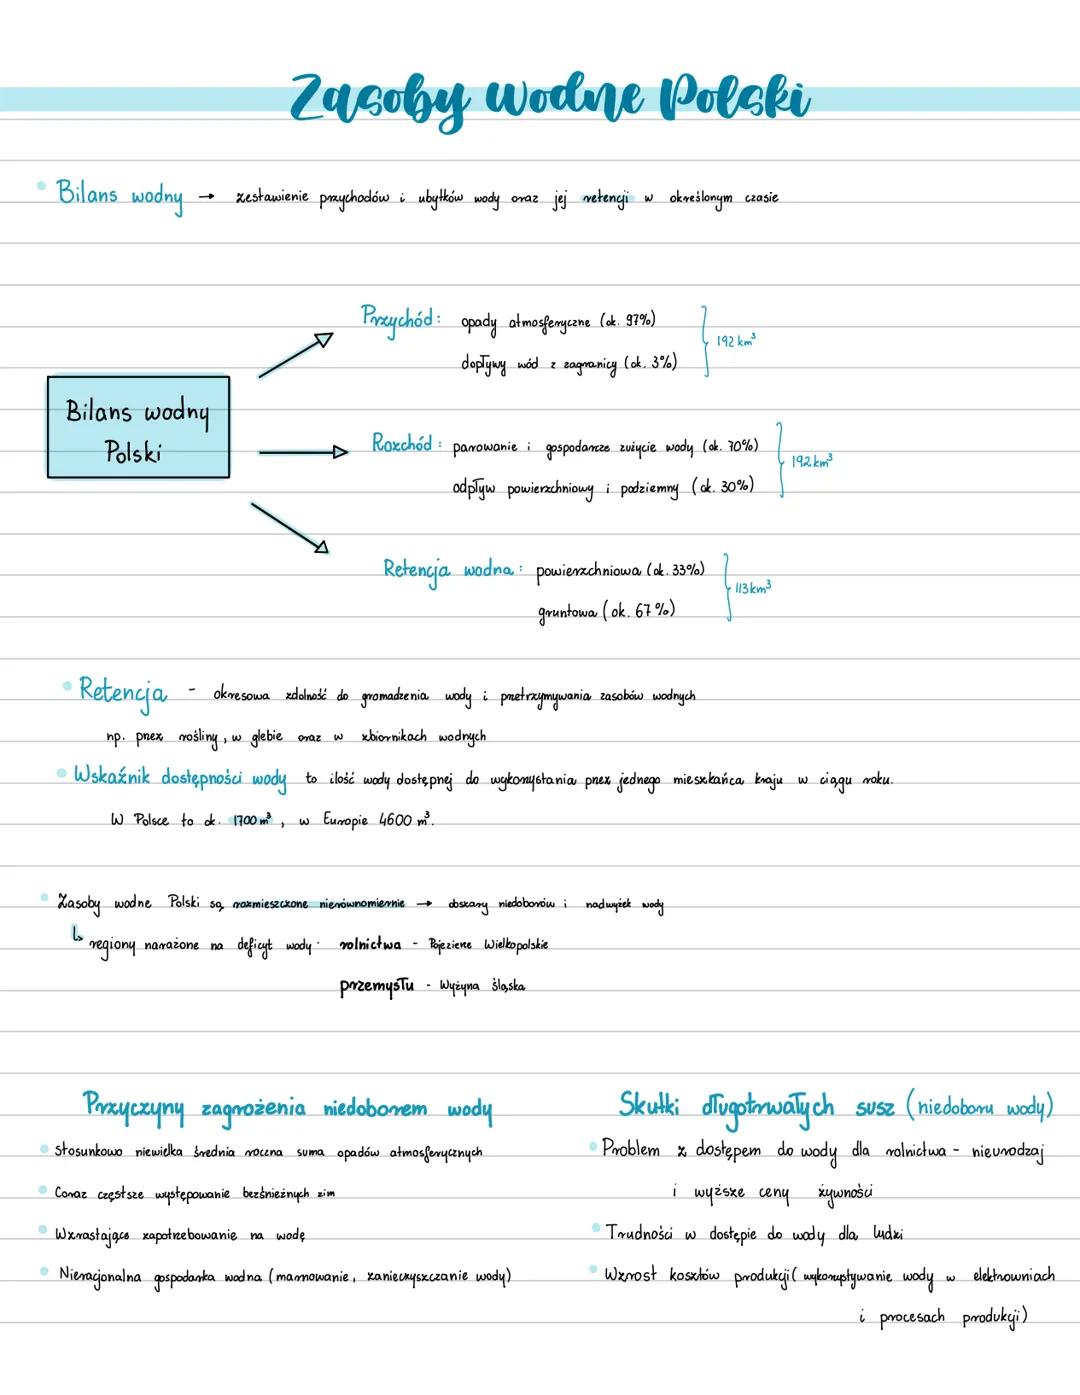 Zasoby Wodne Polski
Bilans wodny → zestawienie przychodów i ubytków wody oraz jej retencji w określonym czasie
Przychód: opady atmosferyczne (ok. 97%)
192 km³
dopływy wód z zagranicy (ok. 3%)
Bilans wodny
Polski
Rozchód: parowanie i gospodarcze zużycie wody (ok. 70%)
192 km³
odpływ powierzchniowy i podziemny (ok. 30%)
Retencja wodna: powierzchniowa (ok. 33%)
113 km³
gruntowa (ok. 67%)
Retencja - okresowa zdolność do gromadzenia wody i przetrzymywania zasobów wodnych
np. przez rośliny, w glebie oraz w zbiornikach wodnych
Wskaźnik dostępności wody to ilość wody dostępnej do wykorzystania przez jednego mieszkańca kraju w ciągu roku.
W Polsce to ok. 1700 m³, w Europie 4600 m³.
Zasoby wodne Polski są rozmieszczone nierównomiernie → obszary niedoborów i nadwyżek wody
↳ regiony narażone na deficyt wody: rolnictwa - Pojezierze Wielkopolskie
przemysłu - Wyżyna śląska
Przyczyny zagrożenia niedoborem wody
Stosunkowo niewielka średnia roczna suma opadów atmosferycznych
Coraz częstsze występowanie bezśnieżnych zim
Wzrastające zapotrzebowanie na wodę
Nieracjonalna gospodarka wodna (marnowanie, zanieczyszczanie wody)
Skutki długotrwałych susz (niedoboru wody)
Problem z dostępem do wody dla rolnictwa - nieurodzaj
i wyższe ceny żywności
Trudności w dostępie do wody dla ludzi
Wzrost kosztów produkcji (wykorzystywanie wody w elektrowniach
i procesach produkcji)